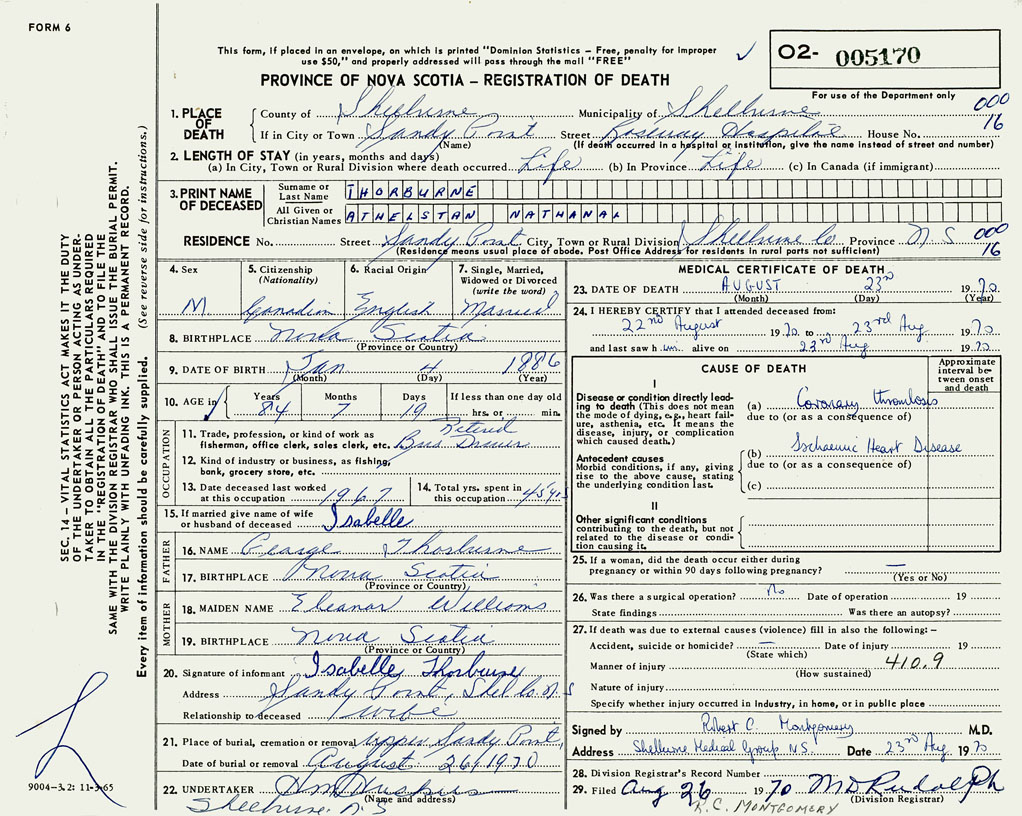 FORM 6
This form, if placed in an envelope, on which is printed "Dominion Statistics – Free, penalty for improper
use $50," and properly addressed will pass through the mail "FREE"
✓
O2- 005170
PROVINCE OF NOVA SCOTIA – REGISTRATION OF DEATH
For use of the Department only
000
16
1. PLACE OF DEATH
County of Shelburne Municipality of Shelburne
If in City or Town Sandy Point Street Roseway Hospital House No.
(Name) (If death occurred in a hospital or institution, give the name instead of street and number)
2. LENGTH OF STAY (in years, months and days)
(a) In City, Town or Rural Division where death occurred Life (b) In Province Life (c) In Canada (if immigrant)
3. PRINT NAME OF DECEASED
Surname or Last Name THORBURNE
All Given or Christian Names ATHELSTAN NATHANAL
RESIDENCE No. Street Sandy Point City, Town or Rural Division Shelburne Co. Province N.S 000
(Residence means usual place of abode. Post Office Address for residents in rural parts not sufficient) 16
4. Sex M
5. Citizenship (Nationality) Canadian
6. Racial Origin English
7. Single, Married, Widowed or Divorced (write the word) Married
8. BIRTHPLACE Nova Scotia
(Province or Country)
9. DATE OF BIRTH Jan 4 1886
(Month) (Day) (Year)
10. AGE in Years 84 Months 7 Days 19 If less than one day old hrs. or min.
OCCUPATION
11. Trade, profession, or kind of work as fisherman, office clerk, sales clerk, etc. Retired Bus Driver
12. Kind of industry or business, as fishing, bank, grocery store, etc.
13. Date deceased last worked at this occupation 1967
14. Total yrs. spent in this occupation 45 yrs
15. If married give name of wife or husband of deceased Isabelle
FATHER
16. NAME George Thorburne
17. BIRTHPLACE Nova Scotia
(Province or Country)
MOTHER
18. MAIDEN NAME Eleanor Williams
19. BIRTHPLACE Nova Scotia
(Province or Country)
20. Signature of informant Isabelle Thorburne
Address Sandy Point, Shel Co. N.S
Relationship to deceased wife
21. Place of burial, cremation or removal Upper Sandy Point,
Date of burial or removal August 26, 1970
22. UNDERTAKER
(Name and address)
Shelburne. N.S
MEDICAL CERTIFICATE OF DEATH
23. DATE OF DEATH AUGUST 23rd 1970
(Month) (Day) (Year)
24. I HEREBY CERTIFY that I attended deceased from:
22nd August 1970 to 23rd Aug 1970
and last saw him alive on 23rd Aug 1970
CAUSE OF DEATH
Approximate interval between onset and death
I
Disease or condition directly leading to death (This does not mean the mode of dying, e.g., heart failure, asthenia, etc. It means the disease, injury, or complication which caused death.)
(a) Coronary thrombosis
due to (or as a consequence of)
Antecedent causes
Morbid conditions, if any, giving rise to the above cause, stating the underlying condition last.
(b) Ischaemic Heart Disease
due to (or as a consequence of)
(c)
II
Other significant conditions
contributing to the death, but not related to the disease or condition causing it.
25. If a woman, did the death occur either during
pregnancy or within 90 days following pregnancy? —
(Yes or No)
26. Was there a surgical operation? No Date of operation 19
State findings Was there an autopsy?
27. If death was due to external causes (violence) fill in also the following: –
Accident, suicide or homicide? — Date of injury 19
(State which)
Manner of injury 410.9
(How sustained)
Nature of injury
Specify whether injury occurred in industry, in home, or in public place
Signed by Robert C. Montgomery M.D.
Address Shelburne Medical Group N.S. Date 23rd Aug 1970
28. Division Registrar's Record Number
29. Filed Aug 26 1970 M D Rudolph
(Division Registrar)
R.C. MONTGOMERY
SEC. 14 – VITAL STATISTICS ACT MAKES IT THE DUTY
OF THE UNDERTAKER OR PERSON ACTING AS UNDER-
TAKER TO OBTAIN ALL THE PARTICULARS REQUIRED
IN THE "REGISTRATION OF DEATH" AND TO FILE THE
SAME WITH THE DIVISION REGISTRAR WHO SHALL ISSUE THE BURIAL PERMIT.
WRITE PLAINLY WITH UNFADING INK. THIS IS A PERMANENT RECORD.
Every item of information should be carefully supplied. (See reverse side for instructions.)
9004-3.2: 11-3-65